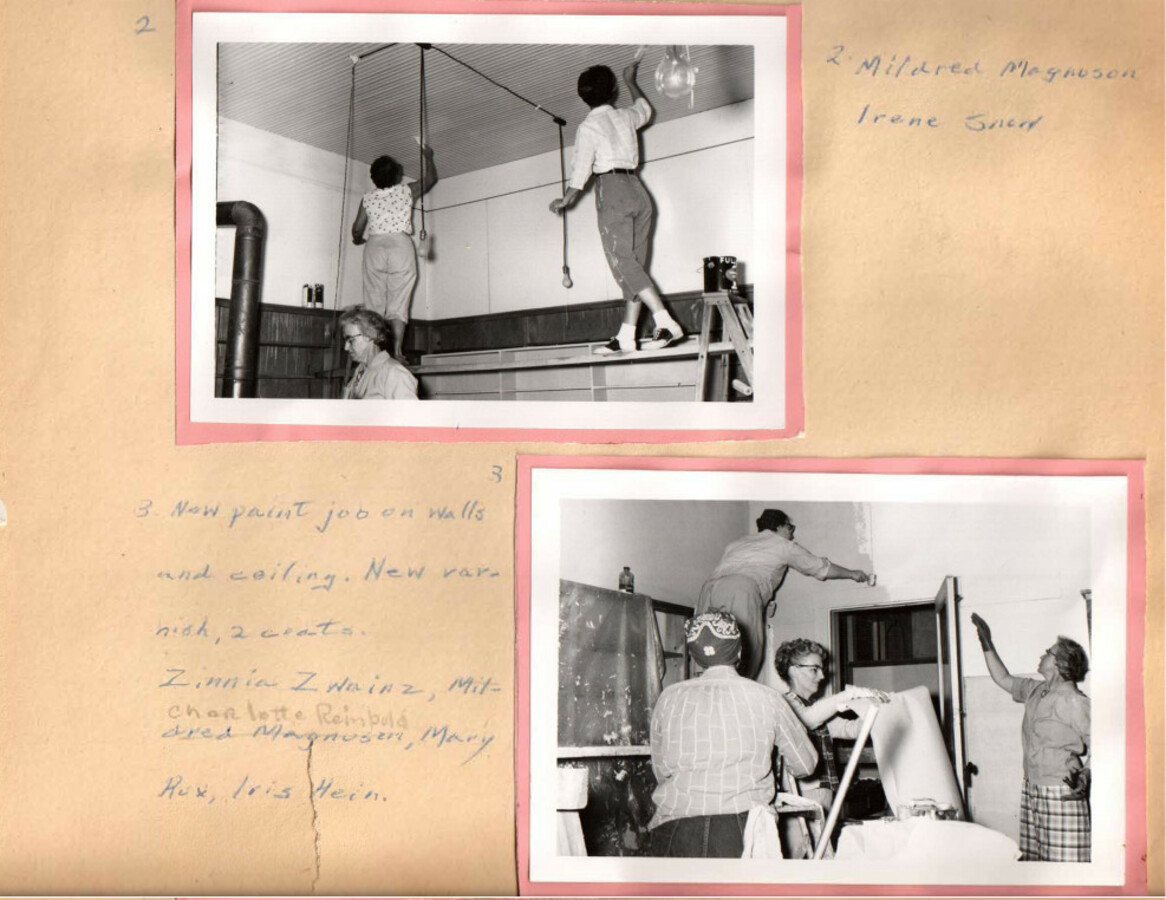 2
2. Mildred Magnuson
Irene Snow
FUL
3
3. New paint job on walls
and ceiling. New var-
nish, 2 coats.
Zinnia Zwainz, Mil-
Charlotte Reinbold
dred Magnuson, Mary
Rux, Iris Hein.